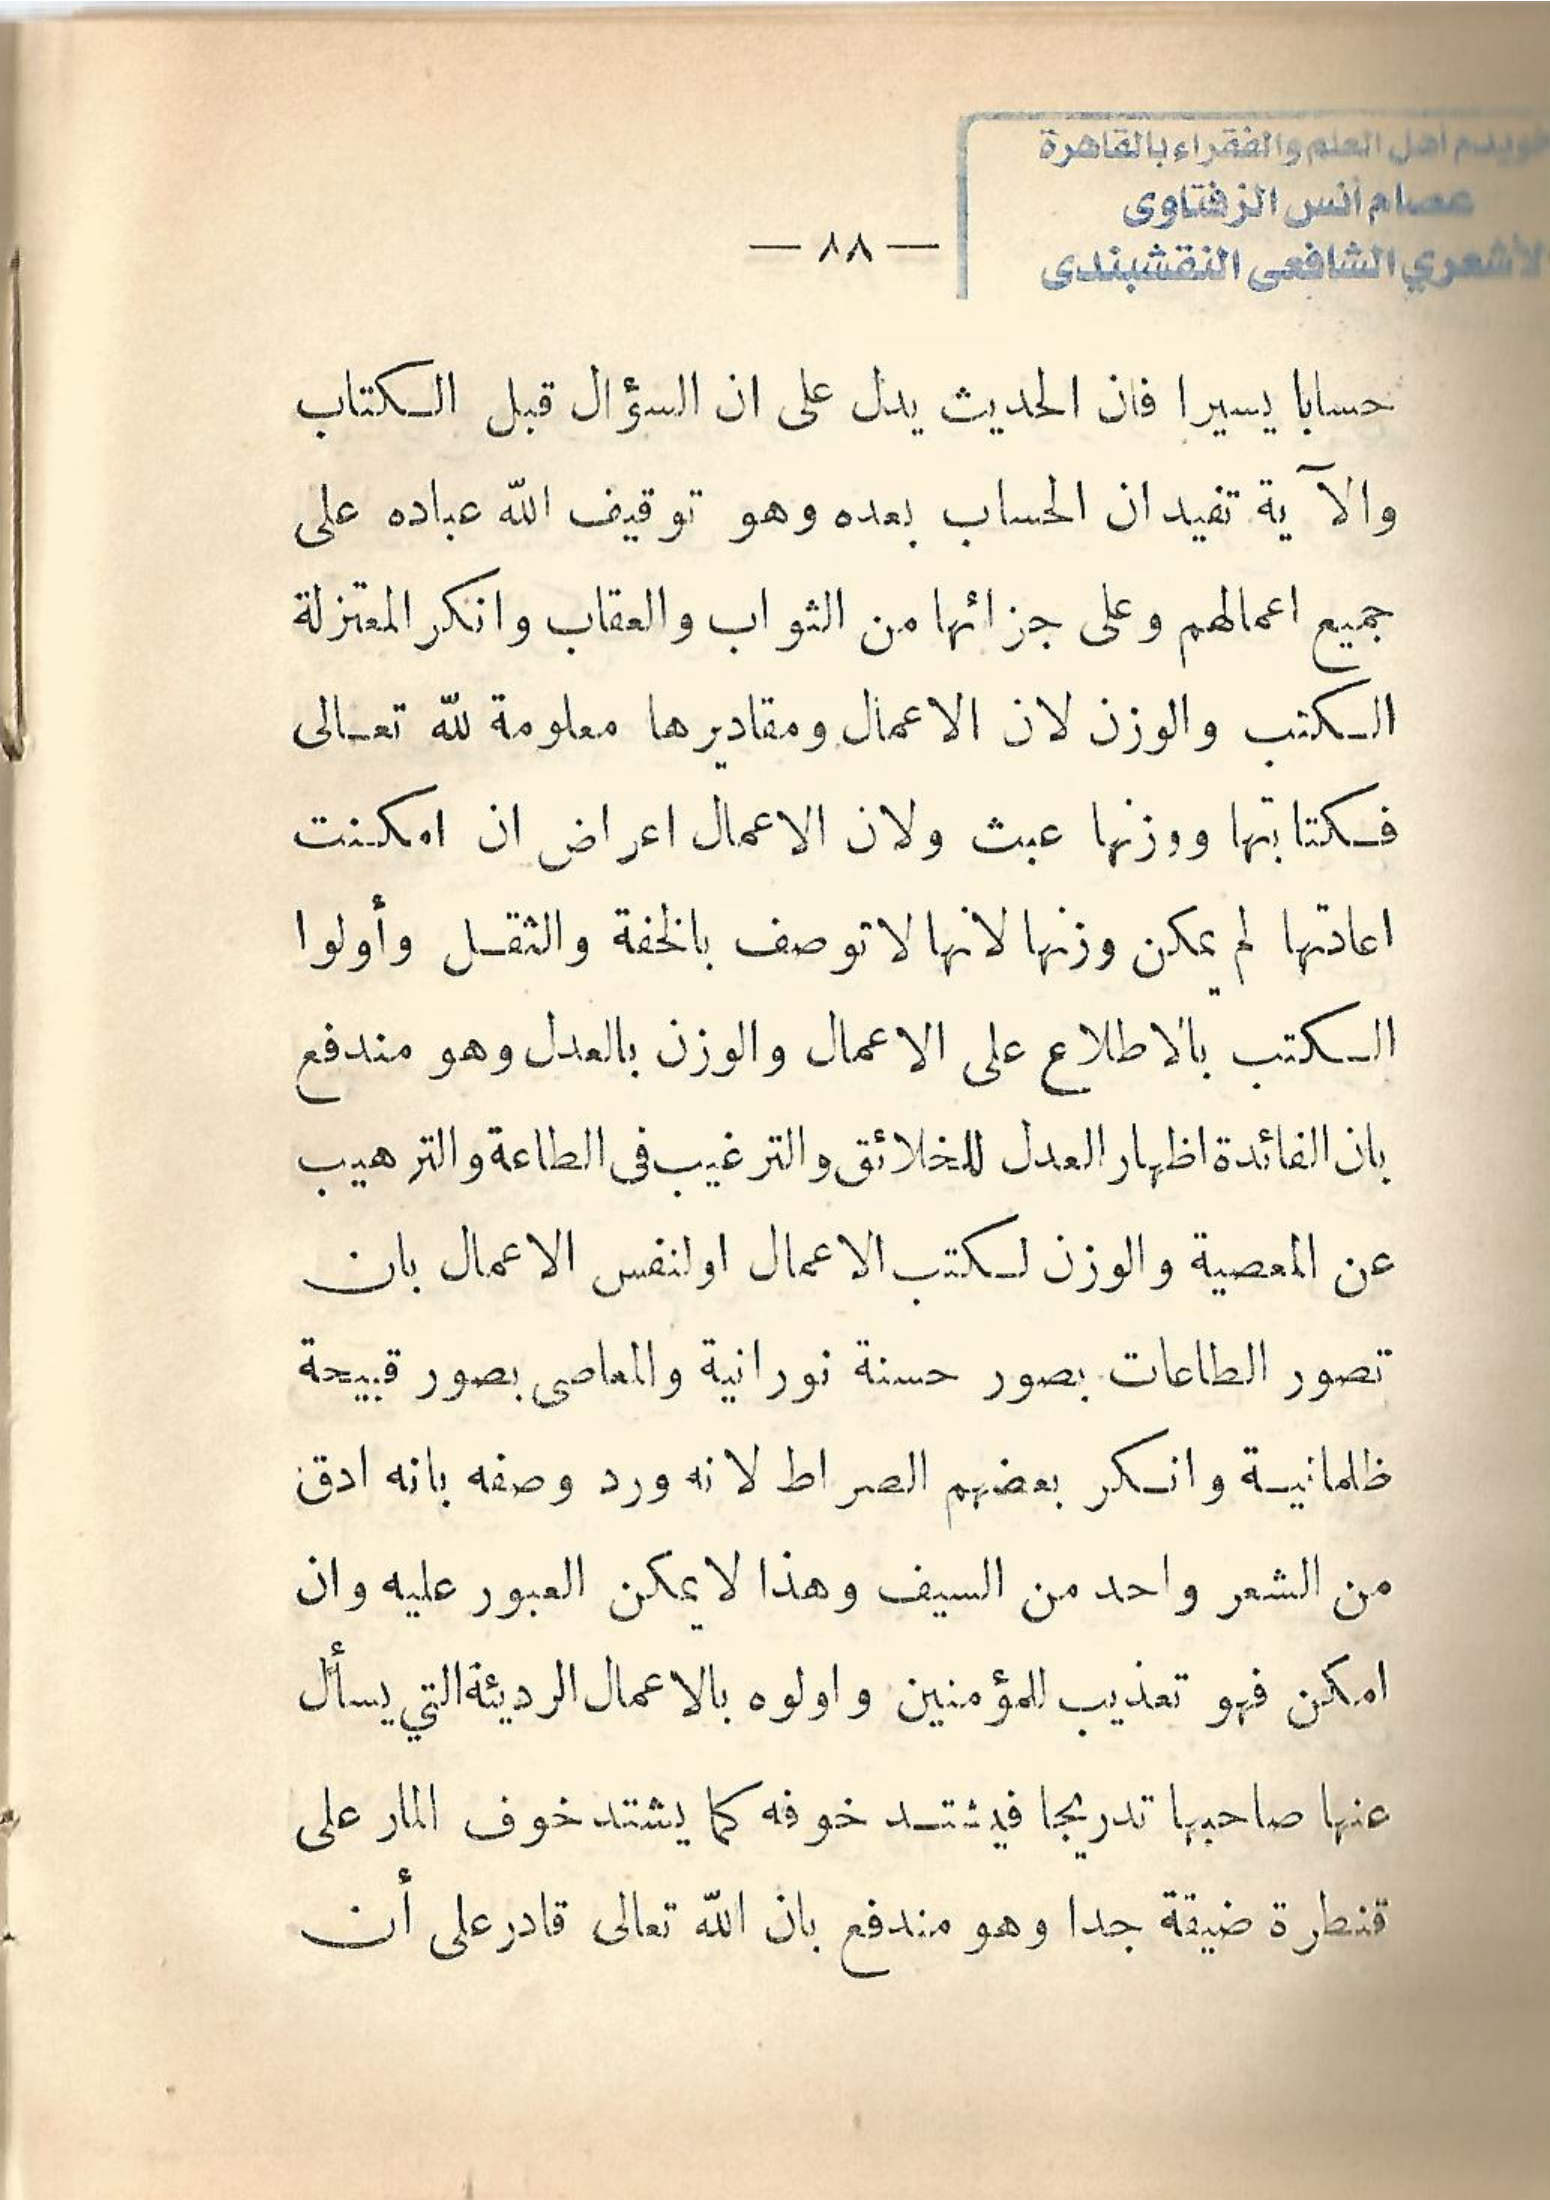 خويدم أهل العلم والفقراء بالقاهرة
عصام أنس الزفتاوى
الأشعري الشافعى النقشبندى
— ٨٨ —
حسابا يسيرا فان الحديث يدل على ان السؤال قبل الكتاب
والآية تفيد ان الحساب بعده وهو توقيف الله عباده على
جميع اعمالهم وعلى جزائها من الثواب والعقاب وانكر المعتزلة
الكتب والوزن لان الاعمال ومقاديرها معلومة لله تعالى
فكتابتها ووزنها عبث ولان الاعمال اعراض ان امكنت
اعادتها لم يمكن وزنها لانها لا توصف بالخفة والثقل وأولوا
الكتب بالاطلاع على الاعمال والوزن بالعدل وهو مندفع
بان الفائدة اظهار العدل للخلائق والترغيب فى الطاعة والترهيب
عن المعصية والوزن لكتب الاعمال اولنفس الاعمال بان
تصور الطاعات بصور حسنة نورانية والمعاصى بصور قبيحة
ظلمانية وانكر بعضهم الصراط لانه ورد وصفه بانه ادق
من الشعر واحد من السيف وهذا لا يمكن العبور عليه وان
امكن فهو تعذيب للمؤمنين واولوه بالاعمال الرديئة التي يسأل
عنها صاحبها تدريجا فيشتد خوفه كما يشتد خوف المار على
قنطرة ضيقة جدا وهو مندفع بان الله تعالى قادر على أن